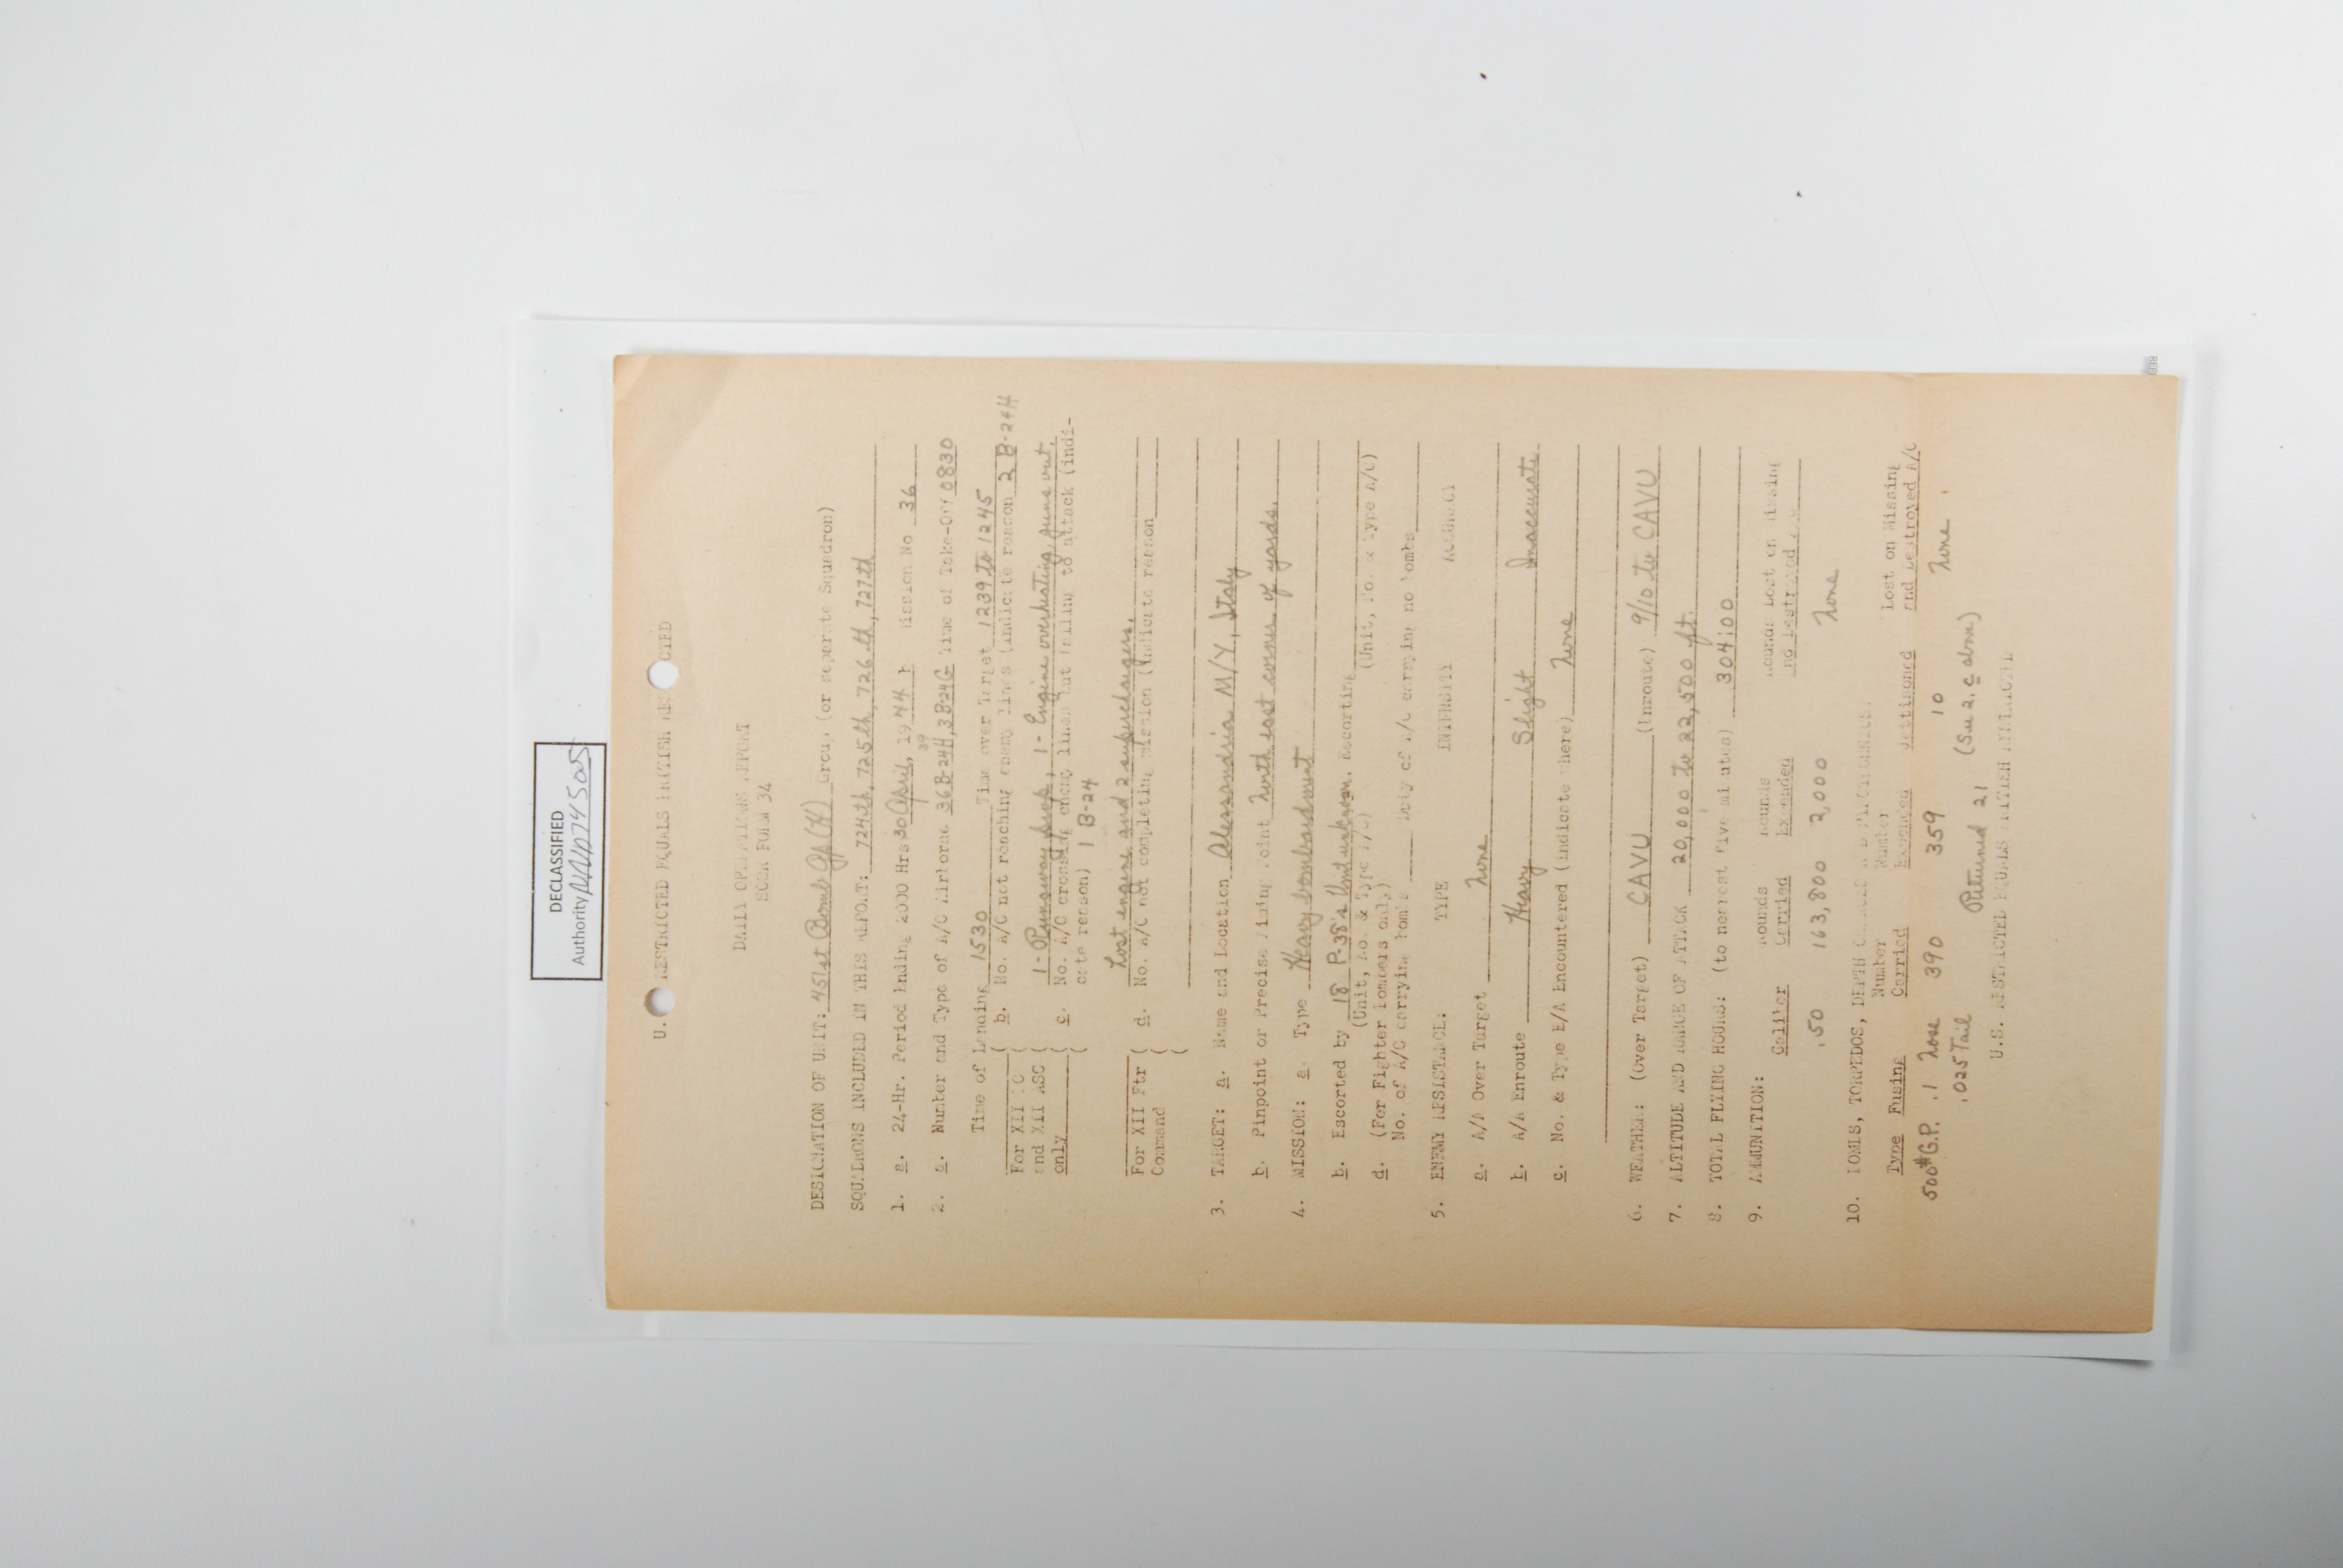 DECLASSIFIED
Authority NND745005
U. RESTRICTED EQUALS BRITISH RES CTED
DAILY OPERATIONS REPORT
SCORM FORM 34
DESIGNATION OF UNIT: 451st Bomb Gp (H) Group (or separate Squadron)
SQUADRONS INCLUDED IN THIS REPORT: 724th, 725th, 726th, 727th
1. a. 24-Hr. Period Ending 2000 Hrs 30 April, 1944 Mission No 36
39
2. a. Number and Type of A/C Airborne 36 B-24H, 3 B-24G Time of Take-Off 0830
Time of Landing 1530 Time over Target 1239 to 1245
For XII BC ( b. No. A/C not reaching enemy lines (indicate reason 2 B-24H
and XII ASC ( 1- Runaway prop, 1- Engine overheating, guns out.
only ( c. No. A/C crossing enemy lines but failing to attack (indi-
( cate reason) 1 B-24
Lost engine and 2 superchargers.
For XII Ftr ( d. No. A/C not completing mission (indicate reason
Command (
(
3. TARGET: a. Name and Location Alessandria M/Y, Italy
b. Pinpoint or Precise Aiming Point North east corner of yards.
4. MISSION: a. Type Heavy bombardment
b. Escorted by 18 P-38's Unit unknown. Escorting
(Unit, No. & Type A/C) (Unit, No. & Type A/C)
d. (For Fighter Bombers only)
No. of A/C carrying bombs Duty of A/C carrying no bombs
5. ENEMY RESISTANCE: TYPE INTENSITY ACCURACY
a. A/A Over Target None
b. A/A Enroute Heavy Slight Inaccurate
c. No. & Type E/A Encountered (indicate where) None
6. WEATHER: (Over Target) CAVU (Enroute) 9/10 to CAVU
7. ALTITUDE AND RANGE OF ATTACK 20,000 to 22,500 ft.
8. TOTAL FLYING HOURS: (to nearest five minutes) 304:00
9. AMMUNITION: Rounds Rounds Rounds Lost on Missing
Caliber Carried Expended and Destroyed A/C
.50 163,800 3,000 None
10. BOMBS, TORPEDOS, DEPTH CHARGES AND PYROTECHNICS.
Number Number Lost on Missing
Type Fusing Carried Expended Jettisoned and Destroyed A/C
500# G.P. .1 Nose 390 359 10 None.
.025 Tail Returned 21 (See 2. c above)
U.S. RESTRICTED EQUALS BRITISH RESTRICTED